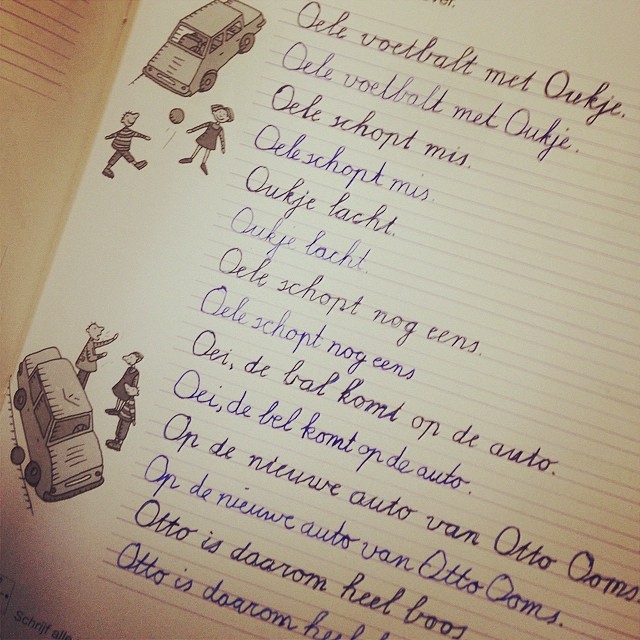 over.
Oele voetbalt met Oukje.
Oele voetbalt met Oukje.
Oele schopt mis.
Oele schopt mis.
Oukje lacht.
Oukje lacht.
Oele schopt nog eens.
Oele schopt nog eens
Oei, de bal komt op de auto.
Oei, de bel komt op de auto.
Op de nieuwe auto van Otto Ooms.
Op de nieuwe auto van Otto Ooms.
Otto is daarom heel boos
Otto is daarom heel
Schrijf alle